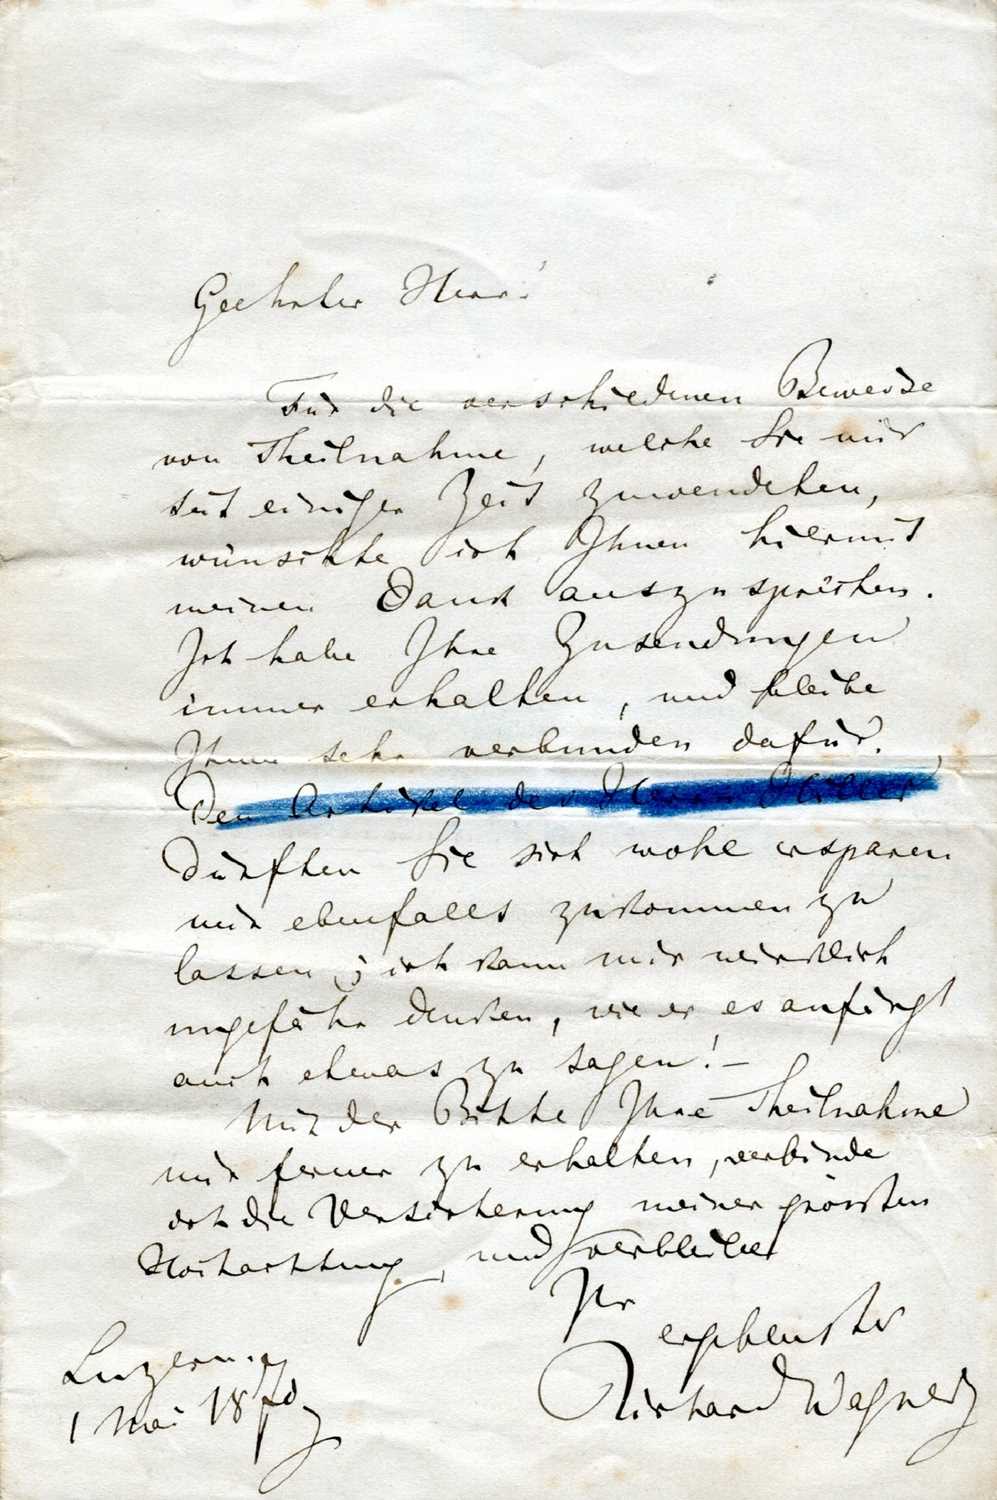 Geehrter Herr!
Für die verschiedenen Beweise
von Theilnahme, welche Sie mir
seit einiger Zeit zuwendeten,
wünschte ich Ihnen hiermit
meinen Dank auszusprechen.
Ich habe Ihre Zusendungen
immer erhalten, und bleibe
Ihnen sehr verbunden dafür.
Den Artikel des Herrn Hiller
dürften Sie sich wohl ersparen
mir ebenfalls zukommen zu
lassen; ich kann mir wirklich
ungefähr denken, wie er es anfängt
auch etwas zu sagen! –
Mit der Bitte Ihre Theilnahme
mir ferner zu erhalten, verbinde
ich die Versicherung meiner grössten
Hochachtung, und verbleibe
Ihr
ergebenster
Richard Wagner
Luzern.
1 Mai 1870